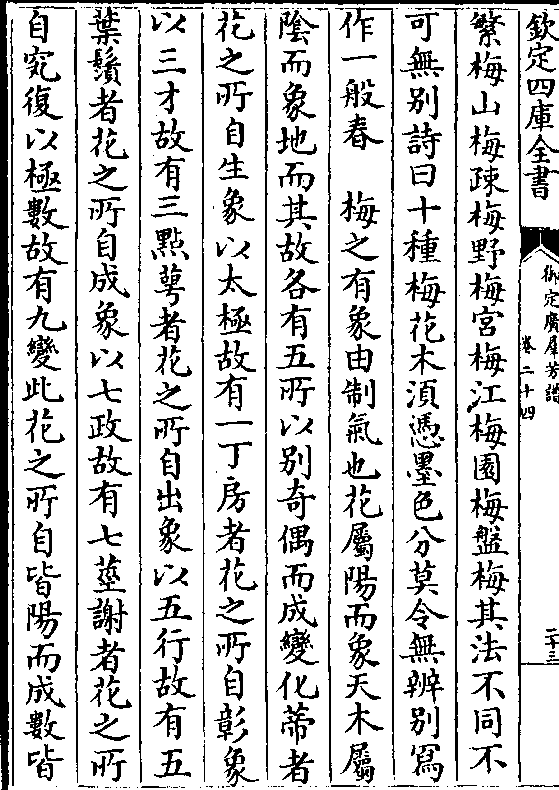 欽定四庫全書
御定廣羣芳譜
卷二十四
二十三
繁梅山梅疎梅野梅宮梅江梅園梅盤梅其法不同不
可無别詩曰十種梅花木須憑墨色分莫令無辨别寫
作一般春　梅之有象由制氣也花屬陽而象天木屬
陰而象地而其故各有五所以别奇偶而成變化蒂者
花之所自生象以太極故有一丁房者花之所自彰象
以三才故有三點萼者花之所自出象以五行故有五
葉鬚者花之所自成象以七政故有七莖謝者花之所
自究復以極數故有九變此花之所自皆陽而成數皆